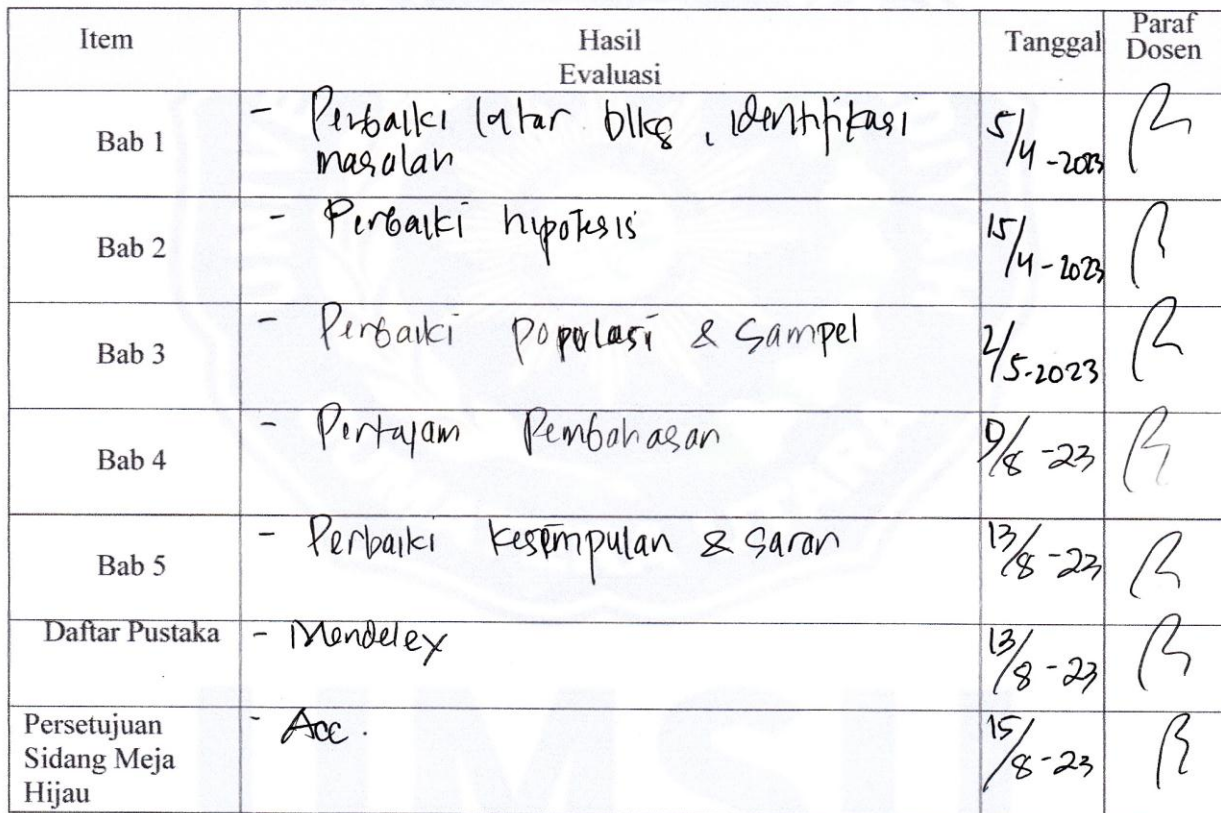 Item Hasil Evaluasi Tanggal Paraf Dosen
Bab 1 - Perbaiki latar blkg, identifikasi 5/4-2023
masalah
Bab 2 - Perbaiki hipotesis 15/4-2023
Bab 3 - Perbaiki populasi & Sampel 2/5-2023
Bab 4 - Pertajam Pembahasan 9/8-23
Bab 5 - Perbaiki kesimpulan & saran 13/8-23
Daftar Pustaka - Mendeley 13/8-23
Persetujuan - Acc. 15/8-23
Sidang Meja
Hijau
UMSU